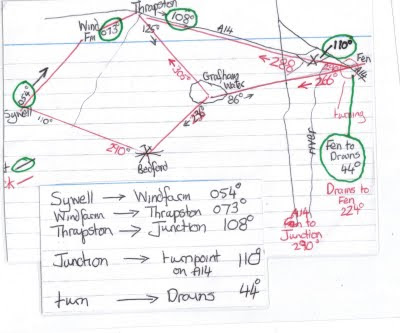 Thrapston
108°
A14
Wind
Fm
073°
125°
110°
Fen
288
A14
305°
Grafham
Water
266°
86°
054°
Sywell
110°
turning
236°
290°
Bedford
Fen to
Drains
44°
Drains to
Fen
224°
A14
Fen to
Junction
290°
Sywell → Windfarm 054°
Windfarm → Thrapston 073°
Thrapston → Junction 108°
Junction → turnpoint 110°
on A14
turn → Drains 44°